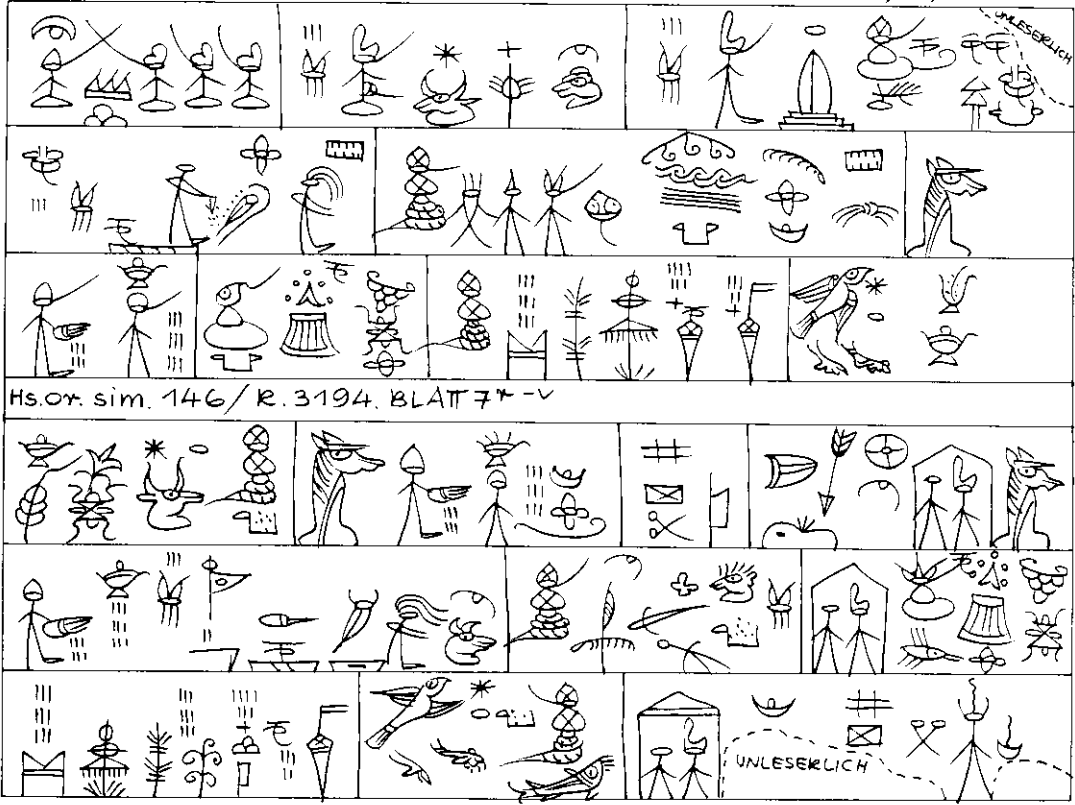 UNLESERLICH
Hs.or. sim. 146/ R. 3194. BLATT 7r-v
UNLESERLICH